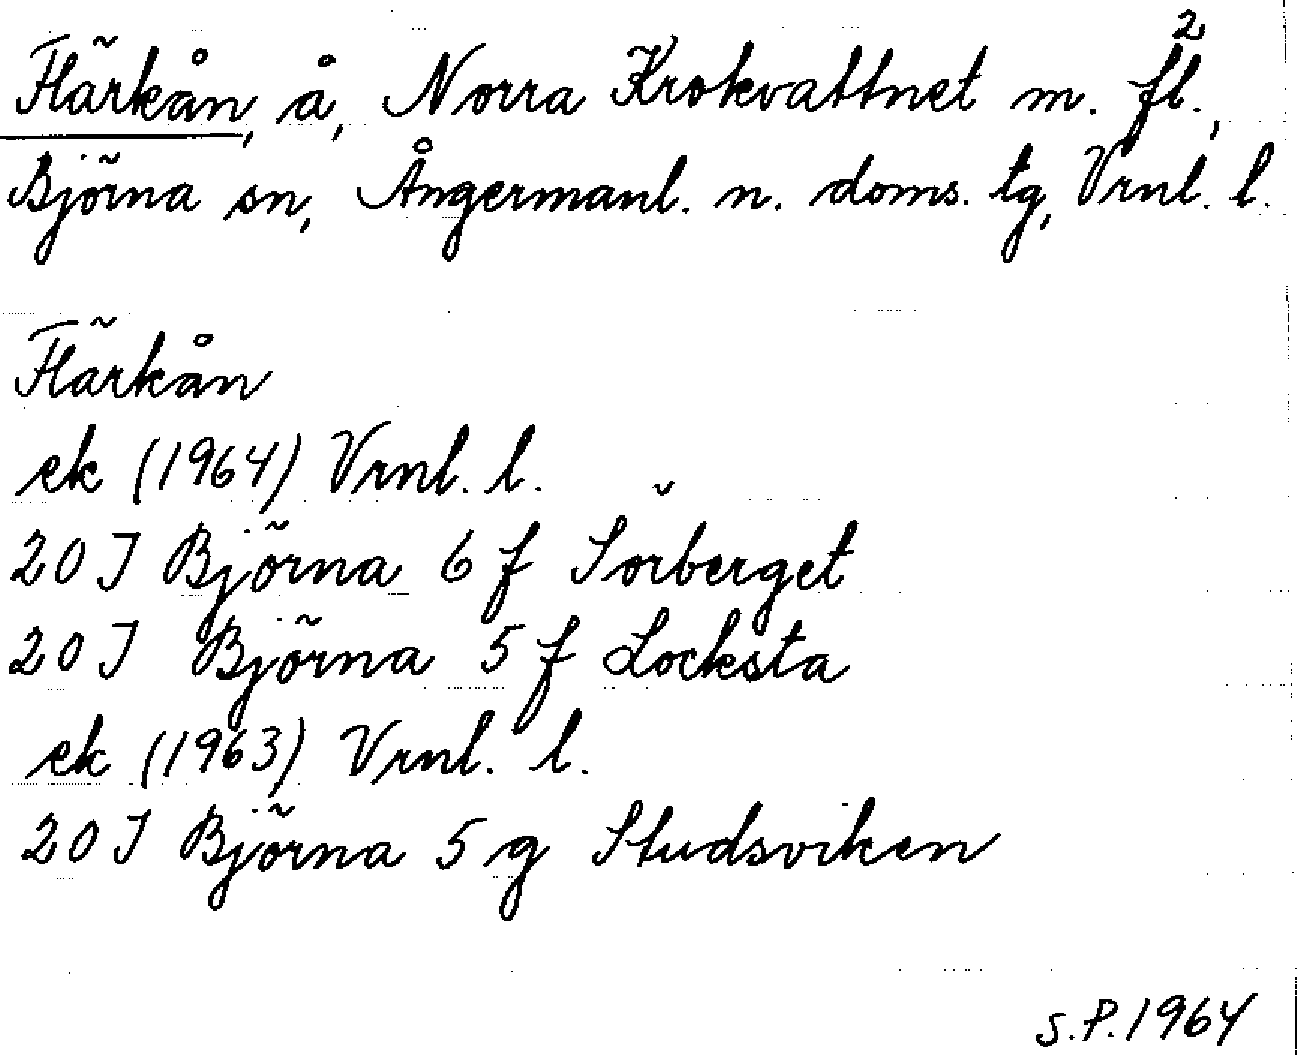 Flärkån, å, Norra Krokvattnet m. fl.²,
Björna sn, Ångermanl. n. doms. tg, Vrnl. l.
Flärkån
ek (1964) Vrnl. l.
20 J Björna 6 f Sörberget
20 J Björna 5 f Locksta
ek (1963) Vrnl. l.
20 J Björna 5 g Studsviken
S.P. 1964